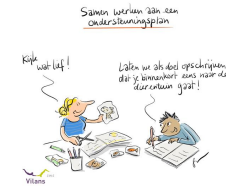 Samen werken aan een
ondersteuningsplan
Kijk
wat lief!
Laten we als doel opschrijven
dat je binnenkort eens naar de
dierentuin gaat!
Vilans